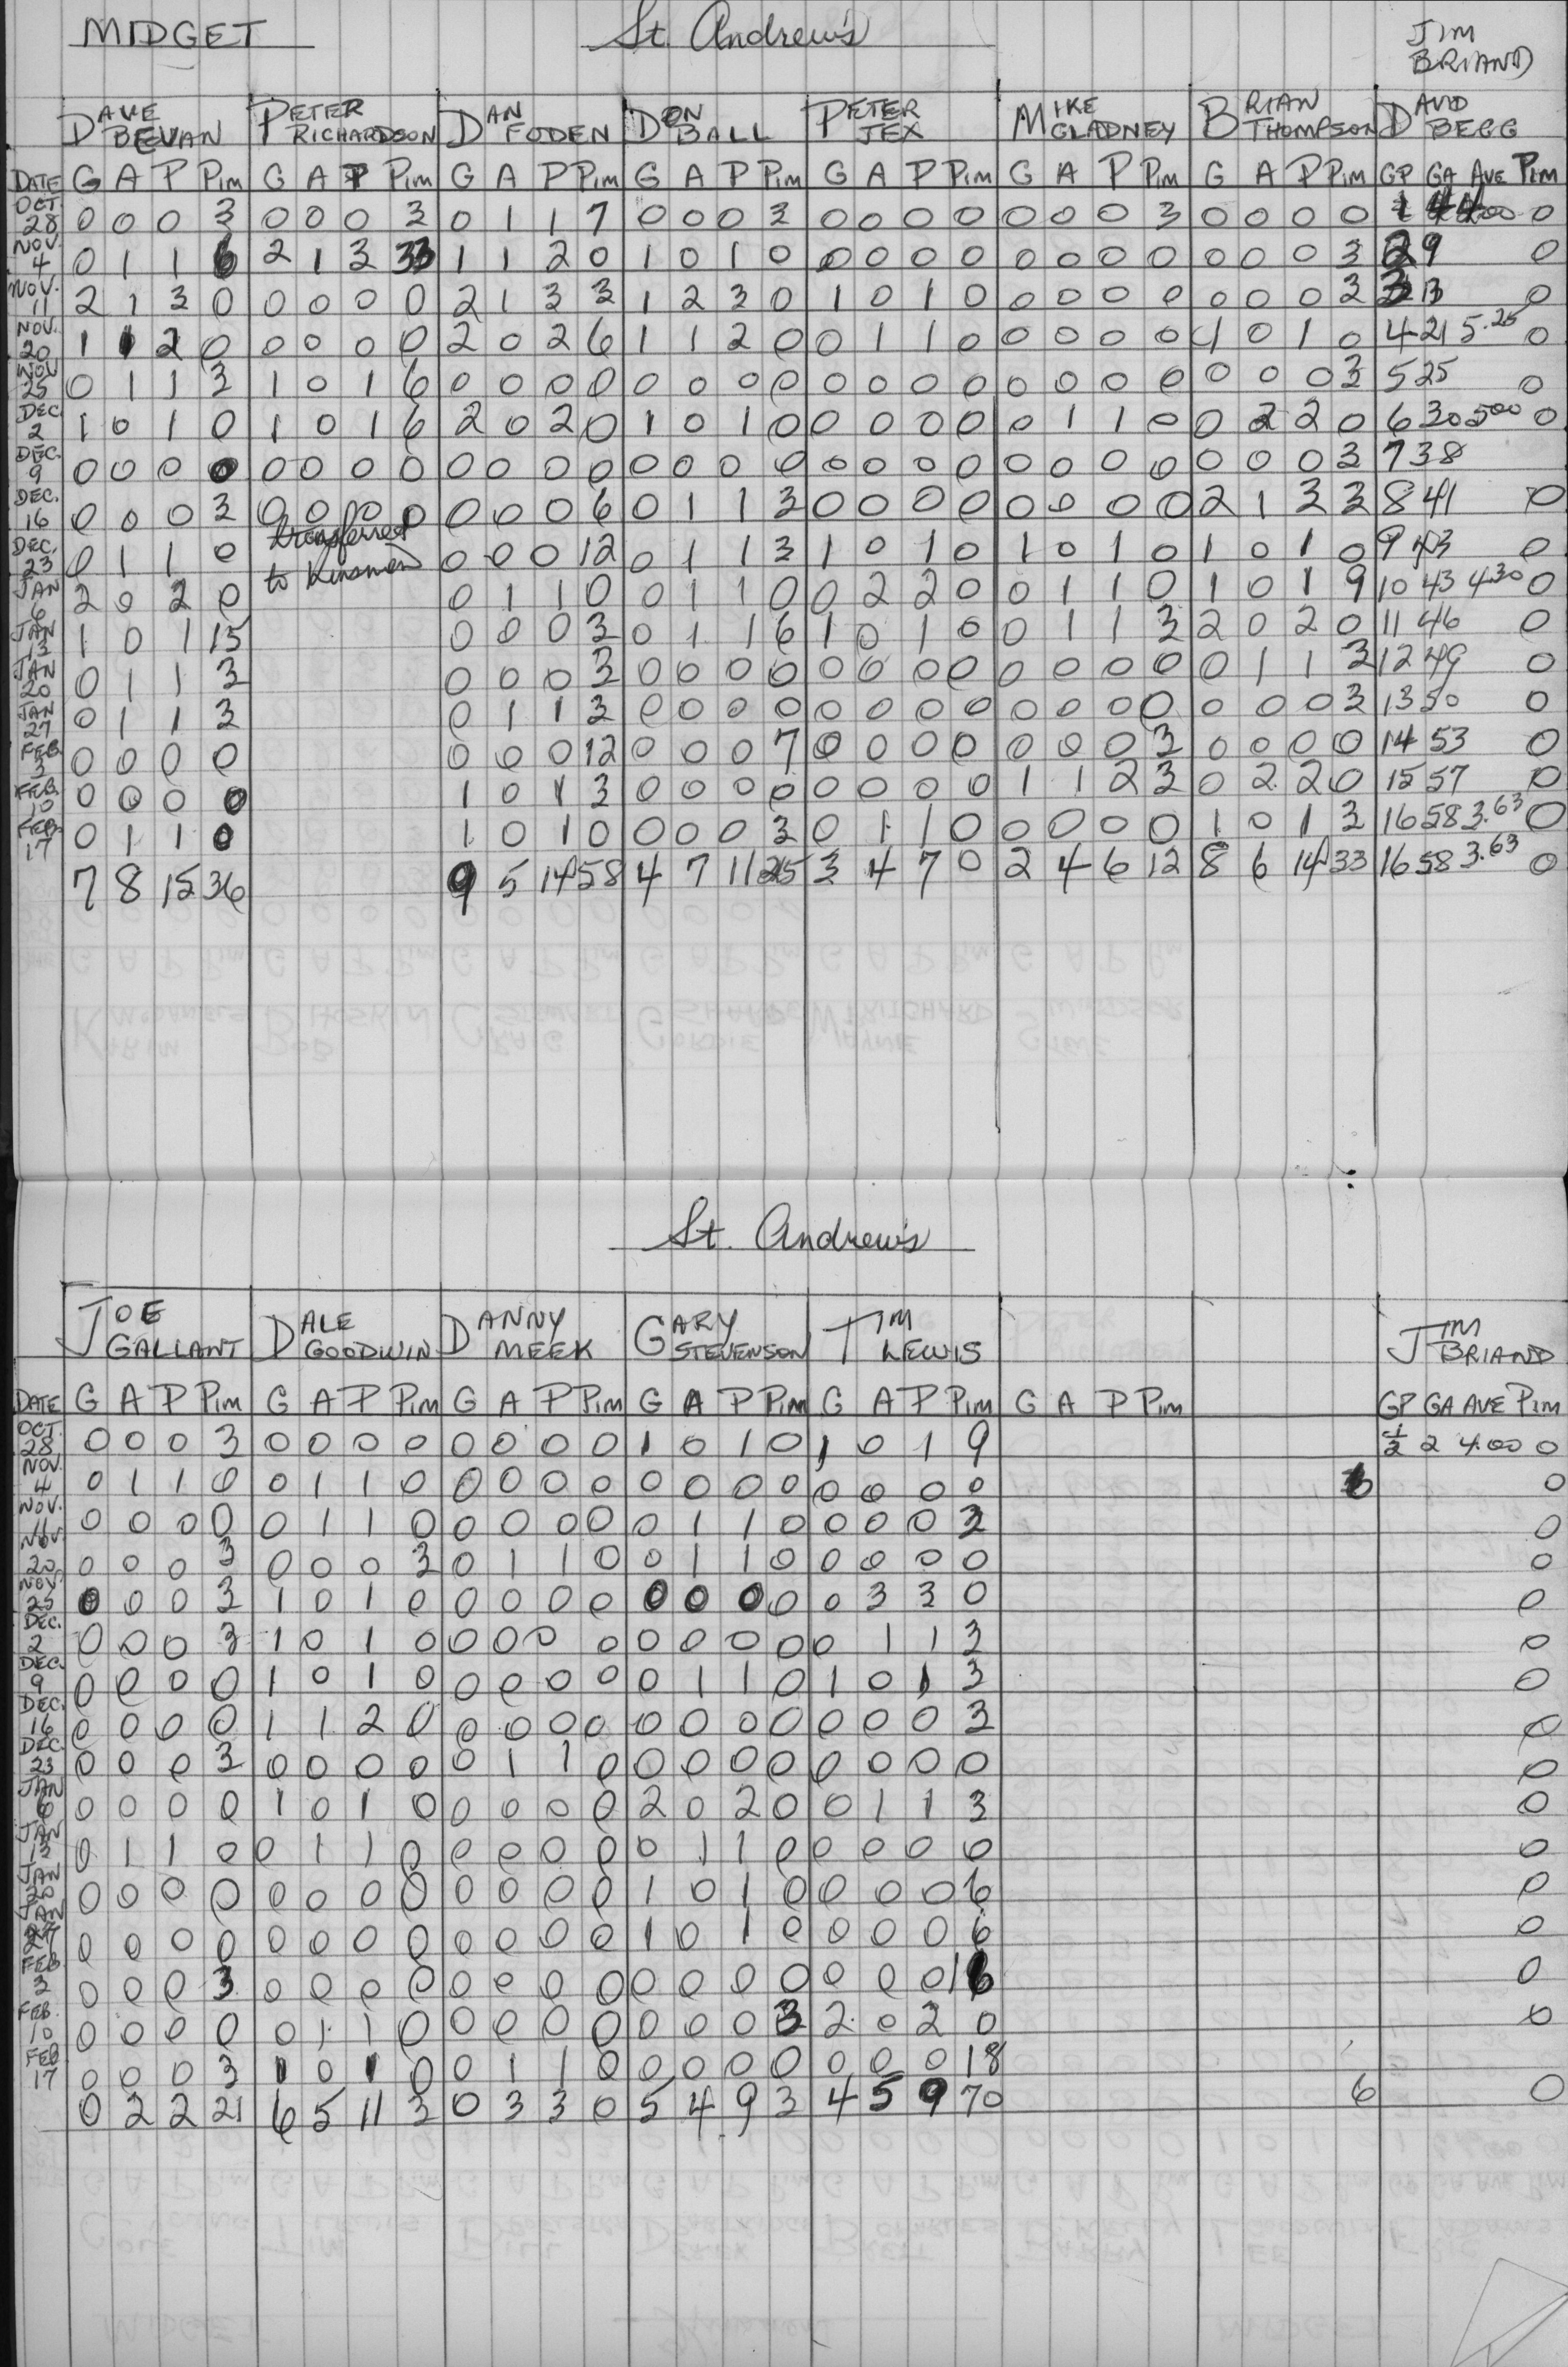 MIDGET St. Andrew's JIM BRIAND
DAVE BEVAN PETER RICHARDSON DAN FODEN DON BALL PETER JEX MIKE GLADNEY BRIAN THOMPSON DAVID BEGG
DATE G A P Pim G A P Pim G A P Pim G A P Pim G A P Pim G A P Pim G A P Pim GP GA AVE Pim
OCT. 28 0 0 0 3 0 0 0 3 0 1 1 7 0 0 0 3 0 0 0 0 0 0 0 3 0 0 0 0 0
NOV. 4 0 1 1 6 2 1 3 33 1 1 2 0 1 0 1 0 0 0 0 0 0 0 0 0 0 0 0 3 2 9 0
NOV. 11 2 1 3 0 0 0 0 0 2 1 3 3 1 2 3 0 1 0 1 0 0 0 0 0 0 0 0 3 3 13 0
NOV. 20 1 1 2 0 0 0 0 0 2 0 2 6 1 1 2 0 0 1 1 0 0 0 0 0 1 0 1 0 4 21 5.25 0
NOV 25 0 1 1 3 1 0 1 6 0 0 0 0 0 0 0 0 0 0 0 0 0 0 0 0 0 0 0 3 5 25 0
DEC 2 1 0 1 0 1 0 1 6 2 0 2 0 1 0 1 0 0 0 0 0 0 1 1 0 0 2 2 0 6 30 500 0
DEC. 9 0 0 0 0 0 0 0 0 0 0 0 0 0 0 0 0 0 0 0 0 0 0 0 0 0 0 0 3 7 38
DEC. 16 0 0 0 3 0 0 0 0 0 0 0 6 0 1 1 3 0 0 0 0 0 0 0 0 2 1 3 3 8 41 0
DEC. 23 0 1 1 0 transferred 0 0 0 12 0 1 1 3 1 0 1 0 1 0 1 0 1 0 1 0 9 43 0
JAN 6 2 0 2 0 to Kinsmen 0 1 1 0 0 1 1 0 0 2 2 0 0 1 1 0 1 0 1 9 10 43 4.30 0
JAN 13 1 0 1 15 0 0 0 3 0 1 1 6 1 0 1 0 0 1 1 3 2 0 2 0 11 46 0
JAN 20 0 1 1 3 0 0 0 3 0 0 0 0 0 0 0 0 0 0 0 0 0 1 1 3 12 49 0
JAN 27 0 1 1 3 0 1 1 3 0 0 0 0 0 0 0 0 0 0 0 0 0 0 0 3 13 50 0
FEB. 3 0 0 0 0 0 0 0 12 0 0 0 7 0 0 0 0 0 0 0 3 0 0 0 0 14 53 0
FEB. 10 0 0 0 0 1 0 1 3 0 0 0 0 0 0 0 0 1 1 2 3 0 2 2 0 15 57 0
FEB. 17 0 1 1 0 1 0 1 0 0 0 0 3 0 1 1 0 0 0 0 0 1 0 1 3 16 58 3.63 0
7 8 15 36 9 5 14 58 4 7 11 25 3 4 7 0 2 4 6 12 8 6 14 33 16 58 3.63 0
St. Andrew's
JOE GALLANT DALE GOODWIN DANNY MEEK GARY STEVENSON TIM LEWIS JIM BRIAND
DATE G A P Pim G A P Pim G A P Pim G A P Pim G A P Pim G A P Pim GP GA AVE Pim
OCT. 28 0 0 0 3 0 0 0 0 0 0 0 0 1 0 1 0 1 0 1 9 1/2 2 4.00 0
NOV. 4 0 1 1 0 0 1 1 0 0 0 0 0 0 0 0 0 0 0 0 0 0
NOV. 11 0 0 0 0 0 1 1 0 0 0 0 0 0 1 1 0 0 0 0 3 0
NOV. 20 0 0 0 3 0 0 0 3 0 1 1 0 0 1 1 0 0 0 0 0 0
NOV. 25 0 0 0 3 1 0 1 0 0 0 0 0 0 0 0 0 0 3 3 0 0
DEC. 2 0 0 0 3 1 0 1 0 0 0 0 0 0 0 0 0 0 1 1 3 0
DEC. 9 0 0 0 0 1 0 1 0 0 0 0 0 0 1 1 0 1 0 1 3 0
DEC. 16 0 0 0 0 1 1 2 0 0 0 0 0 0 0 0 0 0 0 0 3 0
DEC. 23 0 0 0 3 0 0 0 0 0 1 1 0 0 0 0 0 0 0 0 0 0
JAN 6 0 0 0 0 1 0 1 0 0 0 0 0 2 0 2 0 0 1 1 3 0
JAN 13 0 1 1 0 0 1 1 0 0 0 0 0 0 1 1 0 0 0 0 0 0
JAN 20 0 0 0 0 0 0 0 0 0 0 0 0 1 0 1 0 0 0 0 6 0
JAN 27 0 0 0 0 0 0 0 0 0 0 0 0 1 0 1 0 0 0 0 6 0
FEB 3 0 0 0 3 0 0 0 0 0 0 0 0 0 0 0 0 0 0 0 16 0
FEB. 10 0 0 0 0 0 1 1 0 0 0 0 0 0 0 0 3 2 0 2 0 0
FEB 17 0 0 0 3 1 0 1 0 0 1 1 0 0 0 0 0 0 0 0 18
0 2 2 21 6 5 11 3 0 3 3 0 5 4 9 3 4 5 9 70 6 0